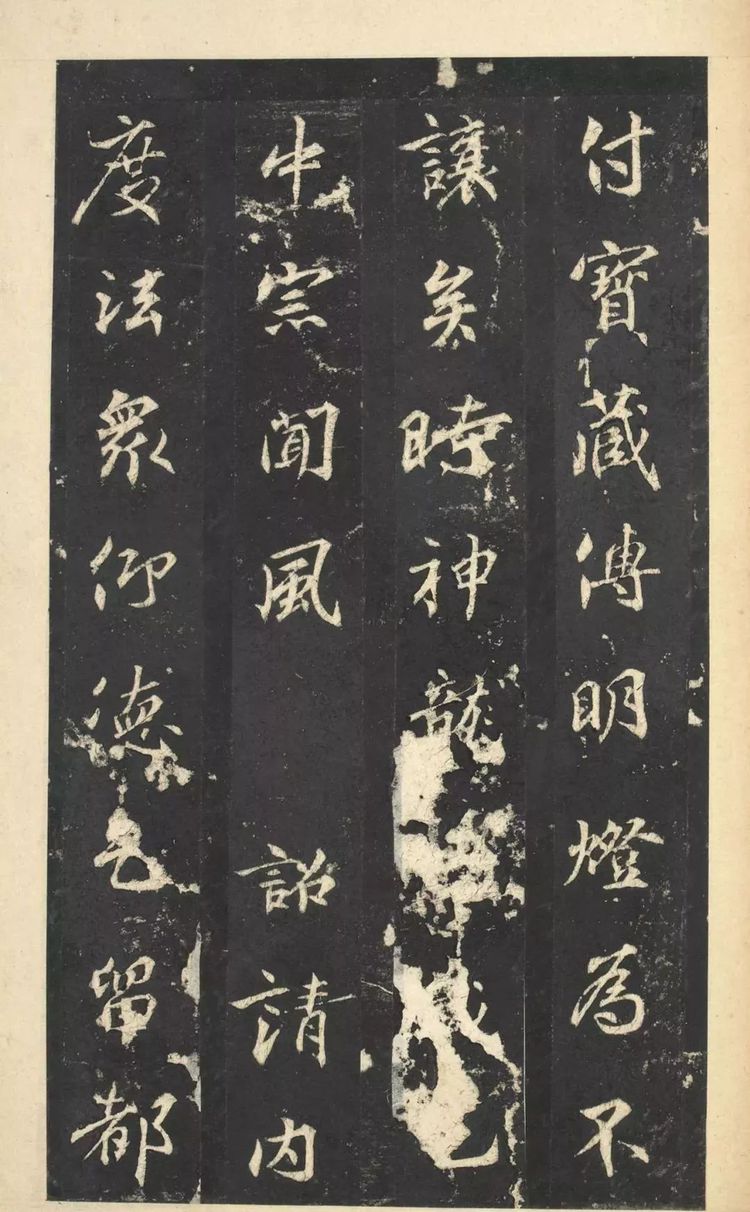 付寶藏傳明燈為不
讓矣時神龍
中宗聞風 詔請内
度法眾仰德乞留都